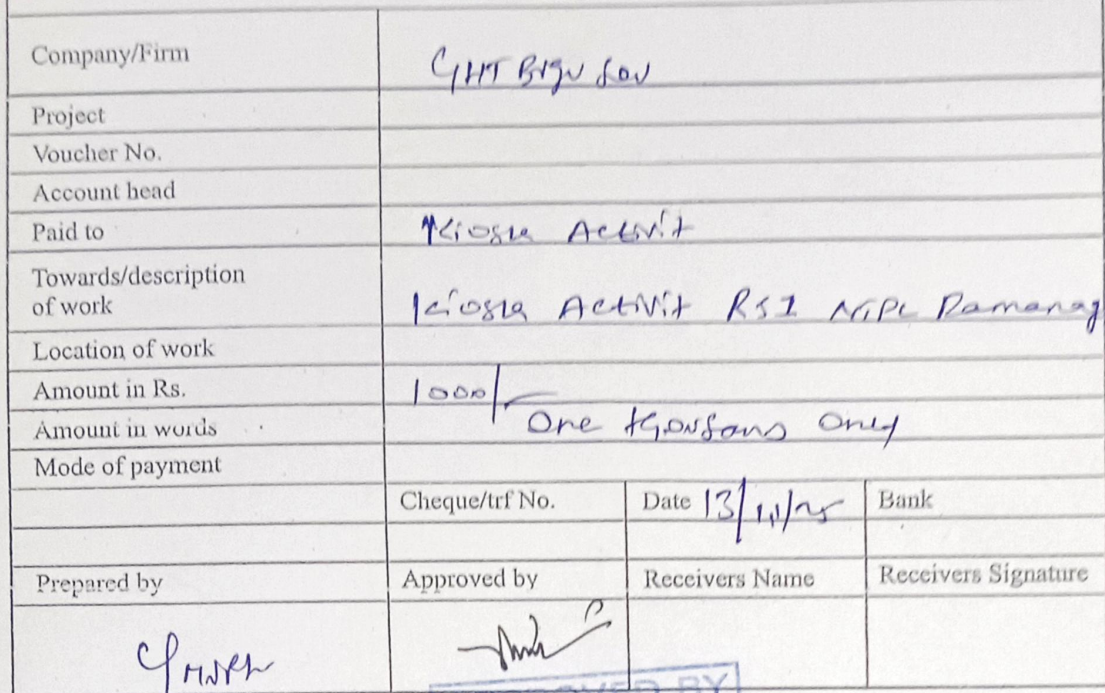 Company/Firm
Project
Voucher No.
Account head
Paid to Kioska Activit
Towards/description
of work Kioska Activit RSI
Location of work
Amount in Rs. 1000/-
Amount in words One thousand Only
Mode of payment
Cheque/trf No. Date 13/11/25 Bank
Prepared by Approved by Receivers Name Receivers Signature